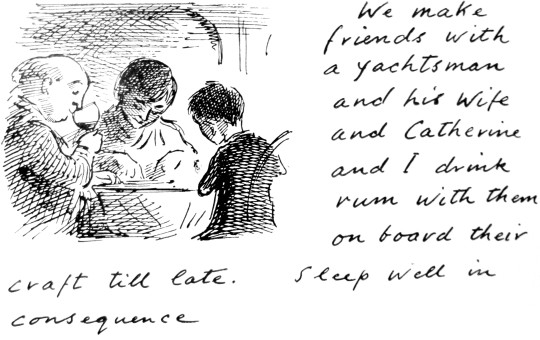 We make
friends with
a yachtsman
and his wife
and Catherine
and I drink
rum with them
on board their
craft till late. Sleep well in
consequence